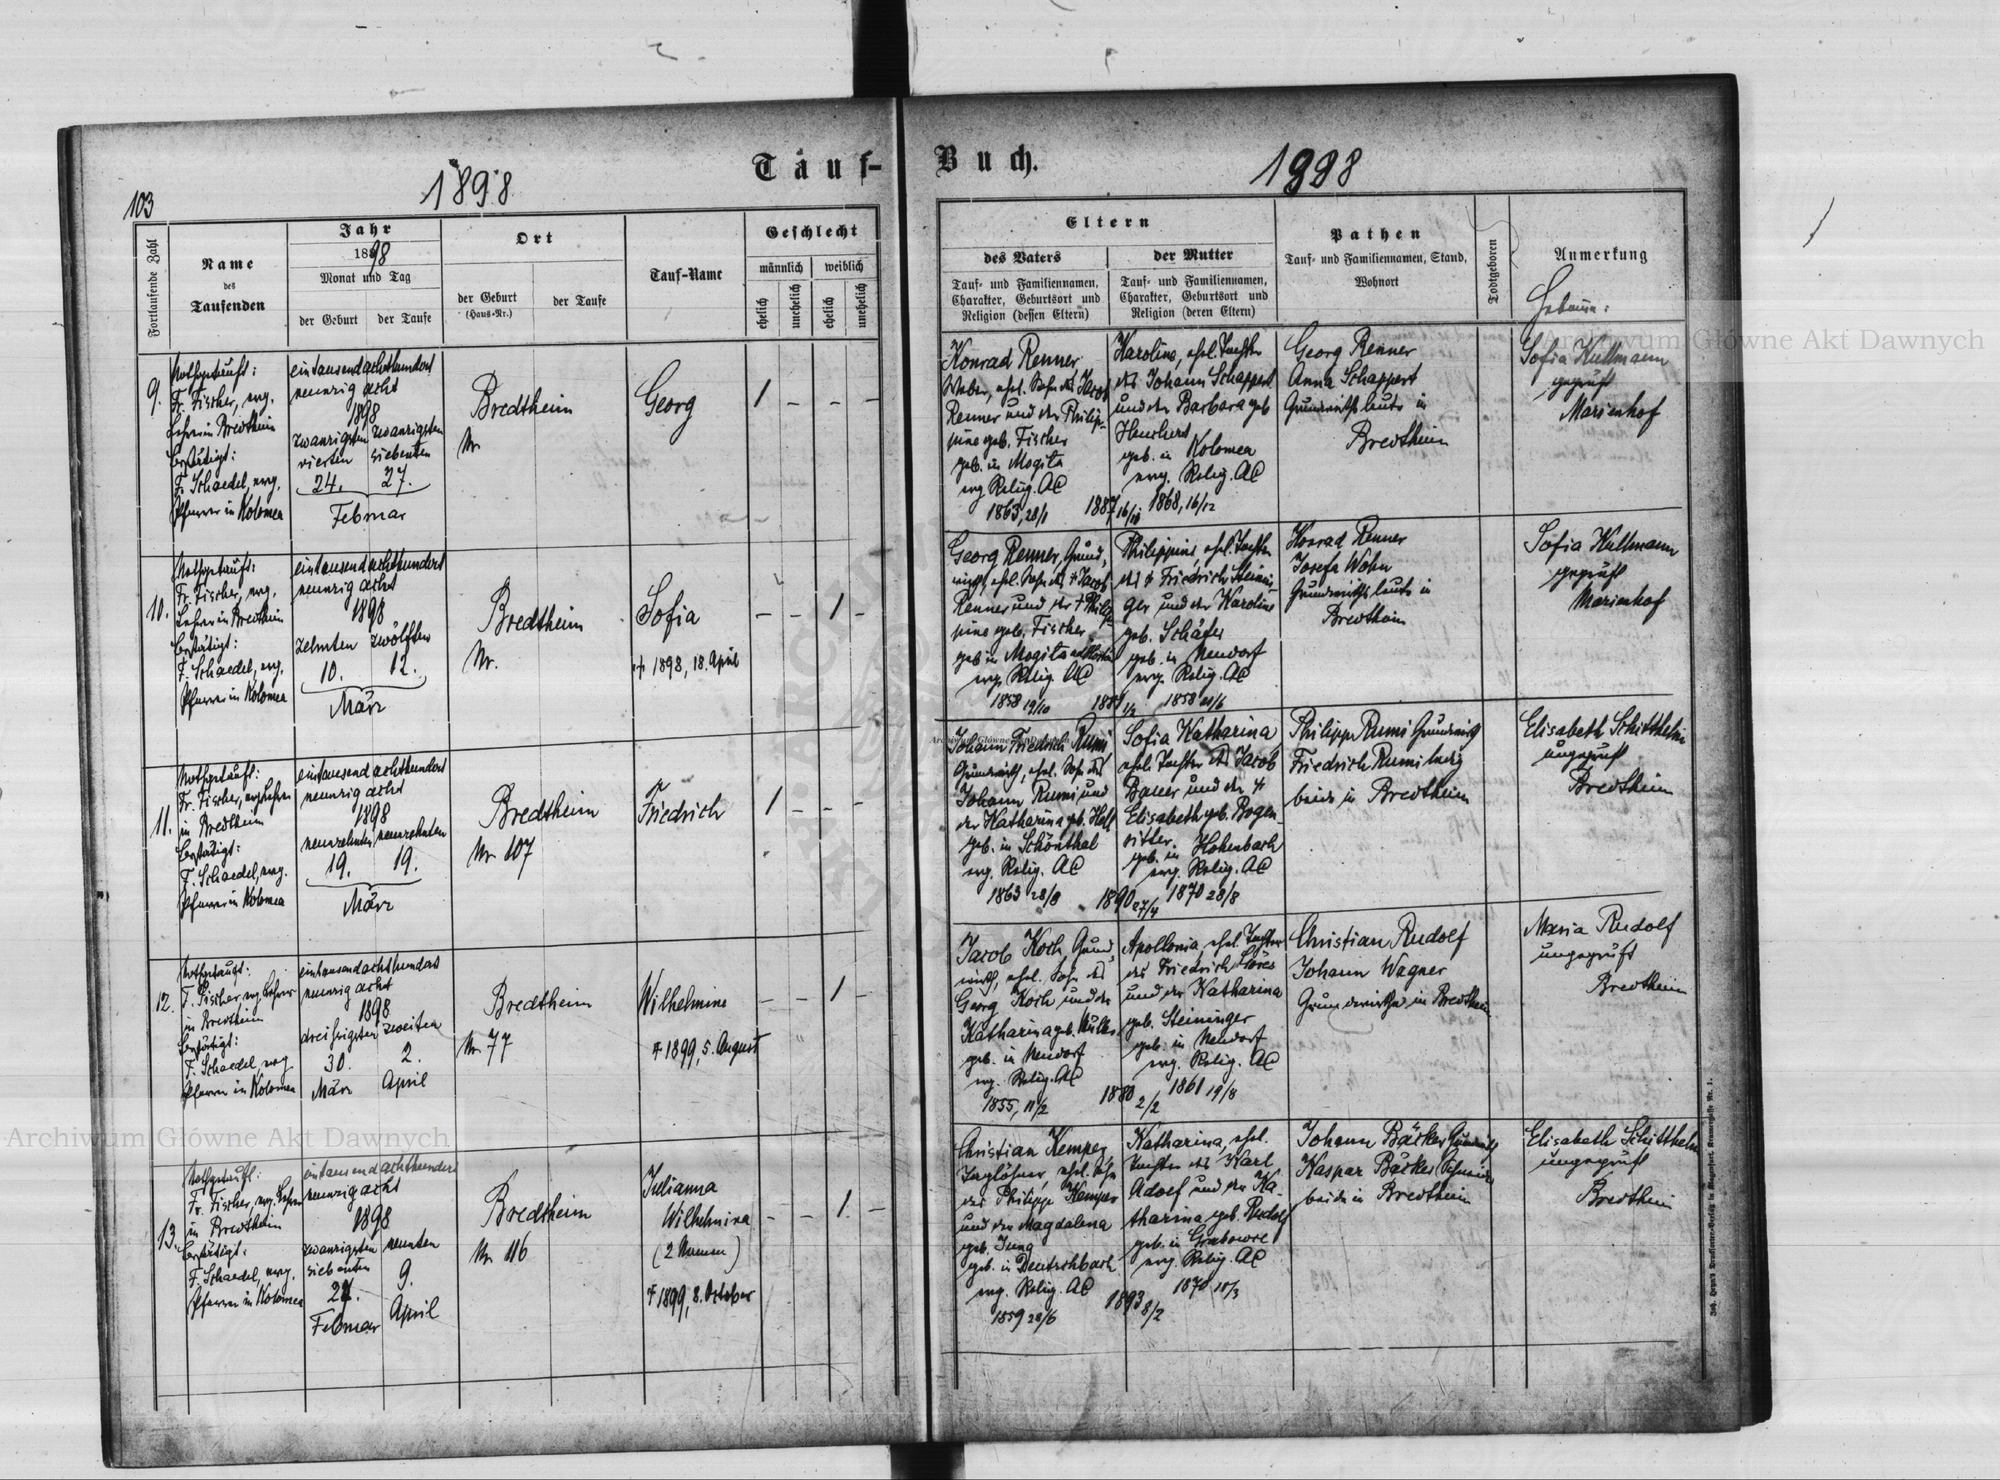 Tauf-
Buch.
1898
1898
103
Fortlaufende Zahl
Name
des
Taufenden
Jahr
1898
Monat und Tag
der Geburt
der Taufe
Ort
der Geburt
(Haus-Nr.)
der Taufe
Tauf-Name
Geschlecht
männlich
weiblich
ehelich
unehelich
ehelich
unehelich
Eltern
des Vaters
Tauf- und Familiennamen,
Charakter, Geburtsort und
Religion (dessen Eltern)
der Mutter
Tauf- und Familiennamen,
Charakter, Geburtsort und
Religion (deren Eltern)
Pathen
Tauf- und Familiennamen, Stand,
Wohnort
Todtgeboren
Anmerkung
9.
Nothgetauft:
Fr. Fischer, evg.
Lehrer in Bredtheim
Bestätigt:
F. Schaedel, evg.
Pfarrer in Kolomea
eintausendachthundert
neunzig acht
1898
zwanzigsten zwanzigsten
vierten siebenten
24. 27.
Februar
Bredtheim
Nr.
Georg
1 – – –
Konrad Renner
Weber, ehel. Sohn des Jacob
Renner und der Philip-
pine geb. Fischer
geb. in Mogila
evg. Relig. AC
1863, 28/1
1887 16/10
Karoline, ehel. Tochter
des Johann Schappert
und der Barbara geb.
geb. in Kolomea
evg. Relig. AC
1868, 16/12
Georg Renner
Anna Schappert
Grundwirthsleute in
Bredtheim
Sofia Kullmann
geprüft
Marienhof
10.
Nothgetauft:
Fr. Fischer, evg.
Lehrer in Bredtheim
Bestätigt:
F. Schaedel, evg.
Pfarrer in Kolomea
eintausendachthundert
neunzig acht
1898
zehnten zwölften
10. 12.
März
Bredtheim
Nr.
Sofia
† 1898, 18. April
– – 1 –
Georg Renner, Grund-
wirth, ehel. Sohn des † Jacob
Renner und der † Philip-
pine geb. Fischer
geb. in Mogila
evg. Relig. AC
1858 19/10
1881 1/2
Philippine, ehel. Tochter
des † Friedrich Steinin-
ger und der Karoline
geb. Schäfer
geb. in Neudorf
evg. Relig. AC
1858 21/6
Konrad Renner
Josefa Wohn
Grundwirthsleute in
Bredtheim
Sofia Kullmann
geprüft
Marienhof
11.
Nothgetauft:
Fr. Fischer, evg. Lehrer
in Bredtheim
Bestätigt:
F. Schaedel, evg.
Pfarrer in Kolomea
eintausendachthundert
neunzig acht
1898
neunzehnten neunzehnten
19. 19.
März
Bredtheim
Nr. 107
Friedrich
1 – – –
Johann Friedrich Rumi
Grundwirth, ehel. Sohn des
Johann Rumi und
der Katharina geb. Holl
geb. in Schönthal
evg. Relig. AC
1863 28/8
1890 27/4
Sofia Katharina
ehel. Tochter des Jacob
Bauer und der †
Elisabeth geb. Bogen-
ritter
geb. in Hohenbach
evg. Relig. AC
1870 28/8
Philipp Rumi Grundwirth
Friedrich Rumi ledig
beide in Bredtheim
Elisabeth Schitthelm
ungeprüft
Bredtheim
12.
Nothgetauft:
F. Fischer, evg. Lehrer
in Bredtheim
Bestätigt:
F. Schaedel, evg.
Pfarrer in Kolomea
eintausendachthundert
neunzig acht
1898
dreißigsten zweiten
30. 2.
März April
Bredtheim
Nr. 77
Wilhelmine
† 1899, 5. August
– – 1 –
Jacob Koch Grund-
wirth, ehel. Sohn des
Georg Koch und der
Katharina geb.
geb. in Neudorf
evg. Relig. AC
1855, 11/2
1880 2/2
Apollonia, ehel. Tochter
des Friedrich
und der Katharina
geb. Steininger
geb. in Neudorf
evg. Relig. AC
1861 19/8
Christian Rudolf
Johann Wagner
Grundwirthe in Bredtheim
Maria Rudolf
ungeprüft
Bredtheim
13.
Nothgetauft:
Fr. Fischer, evg. Lehrer
in Bredtheim
Bestätigt:
F. Schaedel, evg.
Pfarrer in Kolomea
eintausendachthundert
neunzig acht
1898
zwanzigsten neunten
siebenten
27. 9.
Februar April
Bredtheim
Nr. 116
Julianna
Wilhelmina
(2 Namen)
† 1899, 8. October
– – 1 –
Christian Kemper,
Taglöhner, ehel. Sohn
des Philipp Kemper
und der Magdalena
geb. Jung
geb. in Deutschbach
evg. Relig. AC
1859 28/6
1893 8/2
Katharina, ehel.
Tochter des Karl
Adolf und der Ka-
tharina geb. Rudolf
geb. in Grabowce
evg. Relig. AC
1870 18/3
Johann Bäcker Grundwirth
Kaspar Bäcker Schmied
beide in Bredtheim
Elisabeth Schitthelm
ungeprüft
Bredtheim
Archiwum Główne Akt Dawnych
Archiwum Główne Akt Dawnych
Archiwum Główne Akt Dawnych